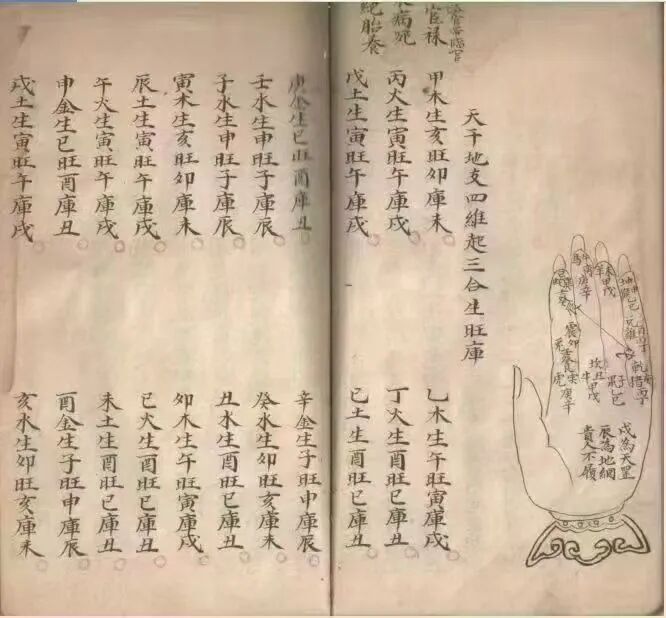 戌為天罡
辰為地網
貴人不履
天干地支四維起三合生旺庫
官禄
病死
絕胎養
甲木生亥旺卯庫未
乙木生午旺寅庫戌
丙火生寅旺午庫戌
丁火生酉旺巳庫丑
戊土生寅旺午庫戌
己土生酉旺巳庫丑
庚金生巳旺酉庫丑
辛金生子旺申庫辰
壬水生申旺子庫辰
癸水生卯旺亥庫未
子水生申旺子庫辰
丑水生酉旺巳庫丑
寅木生亥旺卯庫未
卯木生午旺寅庫戌
辰土生寅旺午庫戌
巳火生酉旺巳庫丑
午火生寅旺午庫戌
未土生酉旺巳庫丑
申金生巳旺酉庫丑
酉金生子旺申庫辰
戌土生寅旺午庫戌
亥水生卯旺亥庫未